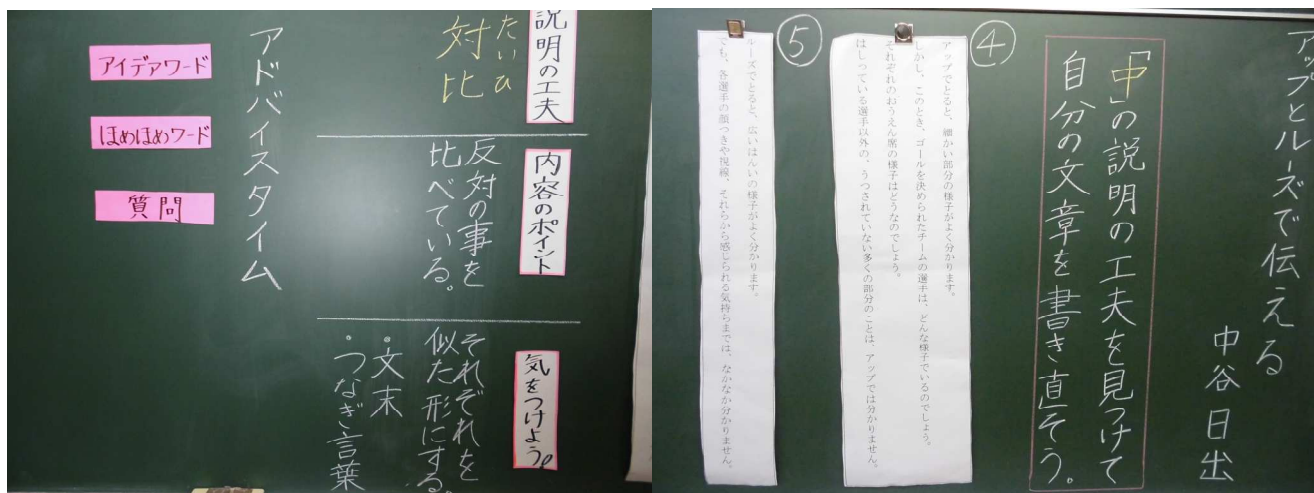 アップとルーズで伝える
中谷日出
「中」の説明の工夫を見つけて
自分の文章を書き直そう。
④
アップでとると、細かい部分の様子がよく分かります。
しかし、このとき、ゴールを決められたチームの選手は、どんな様子でいるのでしょう。
それぞれのおうえん席の様子はどうなのでしょう。
はしっている選手以外の、うつされていない多くの部分のことは、アップでは分かりません。
⑤
ルーズでとると、広いはんいの様子がよく分かります。
でも、各選手の顔つきや視線、それらから感じられる気持ちまでは、なかなか分かりません。
説明の工夫
たいひ
対比
内容のポイント
反対の事を
比べている。
気をつけよう!
それぞれを
似た形にする。
・文末
・つなぎ言葉
アドバイスタイム
アイデアワード
ほめほめワード
質問